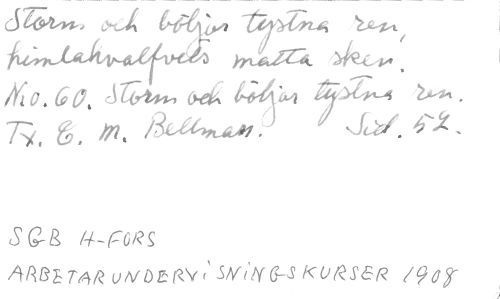 Storm och böljor tystna ren,
himlahvalfvets matta sken.
No. 60. Storm och böljor tystna ren.
Tx. C. M. Bellman. Sid. 52.
SGB H-FORS
ARBETARUNDERVISNINGSKURSER 1908